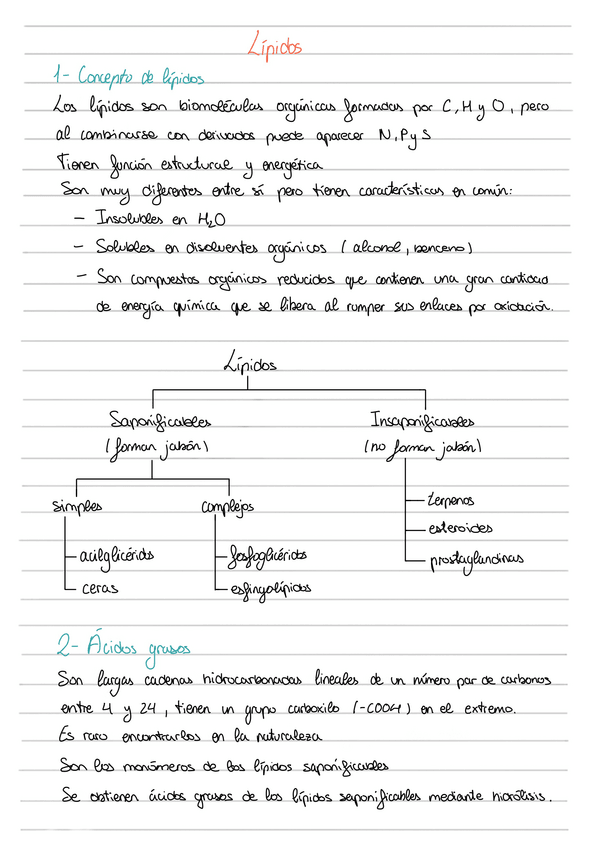 Lípidos
1- Concepto de lípidos
Los lípidos son biomoléculas orgánicas formadas por C, H y O, pero
al combinarse con derivados puede aparecer N, P y S
Tienen función estructural y energética
Son muy diferentes entre sí pero tienen características en común:
- Insolubles en H₂O
- Solubles en disolventes orgánicos (alcohol, benceno)
- Son compuestos orgánicos reducidos que contienen una gran cantidad
de energía química que se libera al romper sus enlaces por oxidación.
Lípidos
Saponificables Insaponificables
(forman jabón) (no forman jabón)
simples complejos terpenos
esteroides
acilglicéridos fosfoglicéridos prostaglandinas
ceras esfingolípidos
2- Ácidos grasos
Son largas cadenas hidrocarbonadas lineales de un número par de carbonos
entre 4 y 24, tienen un grupo carboxilo (-COOH) en el extremo.
Es raro encontrarlos en la naturaleza
Son los monómeros de los lípidos saponificables
Se obtienen ácidos grasos de los lípidos saponificables mediante hidrólisis.